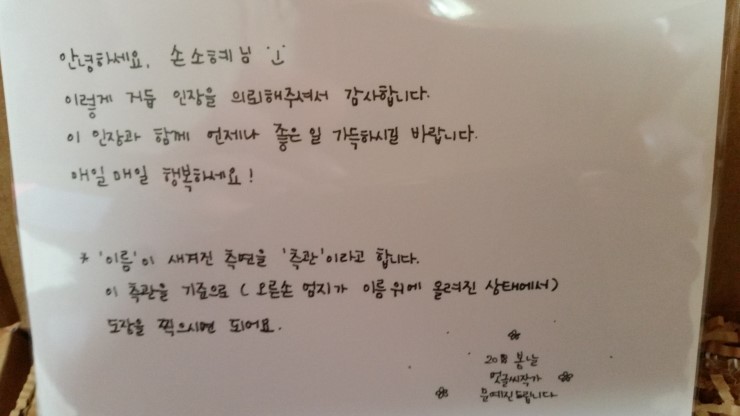 안녕하세요, 손소혜님
이렇게 거듭 인장을 의뢰해주셔서 감사합니다.
이 인장과 함께 언제나 좋은 일 가득하시길 바랍니다.
매일매일 행복하세요!
* '이름'이 새겨진 측면을 '측관'이라고 합니다.
이 측관을 기준으로 (오른손 엄지가 이름위에 올려진 상태에서)
도장을 찍으시면 되어요.
봄날
멋글씨작가
문예진드립니다